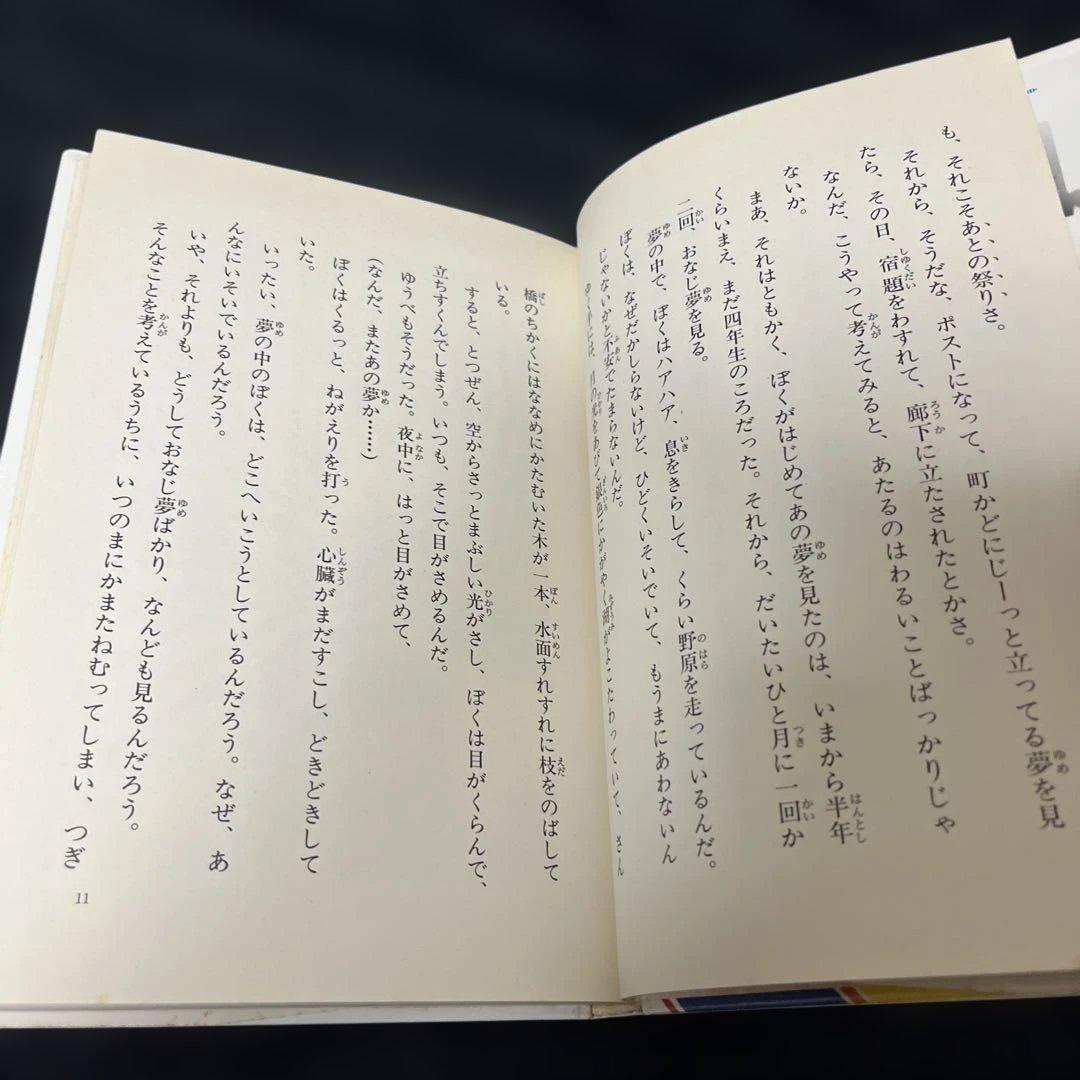 も、それこそあとの祭りさ。
それから、そうだな、ポストになって、町かどにじーっと立ってる夢を見
たら、その日、宿題をわすれて、廊下に立たされたとかさ。
なんだ、こうやって考えてみると、あたるのはわるいことばっかりじゃ
ないか。
まあ、それはともかく、ぼくがはじめてあの夢を見たのは、いまから半年
くらいまえ、まだ四年生のころだった。それから、だいたいひと月に一回か
二回、おなじ夢を見る。
夢の中で、ぼくはハアハア、息をきらして、くらい野原を走っているんだ。
ぼくは、なぜだかしらないけど、ひどくいそいでいて、もうまにあわないん
じゃないかと不安でたまらないんだ。
には、月の光をあびて銀色にかがやく湖がよこたわっていて、さん
橋のちかくにはななめにかたむいた木が一本、水面すれすれに枝をのばして
いる。
すると、とつぜん、空からさっとまぶしい光がさし、ぼくは目がくらんで、
立ちすくんでしまう。いつも、そこで目がさめるんだ。
ゆうべもそうだった。夜中に、はっと目がさめて、
(なんだ、またあの夢か……)
ぼくはくるっと、ねがえりを打った。心臓がまだすこし、どきどきして
いた。
いったい、夢の中のぼくは、どこへいこうとしているんだろう。なぜ、あ
んなにいそいでいるんだろう。
いや、それよりも、どうしておなじ夢ばかり、なんども見るんだろう。
そんなことを考えているうちに、いつのまにかまたねむってしまい、つぎ
11